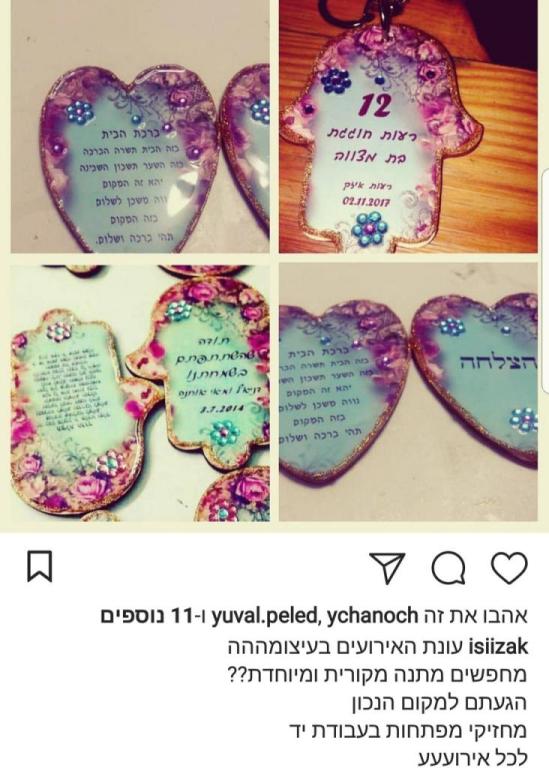 ברכת הבית
בזה הבית תשרה הברכה
בזה השער תשכון השכינה
יהא זה המקום
נווה משכן לשלום
בזה המקום
תהי ברכה ושלום.
12
רעות חוגגת
בת מצווה
רעות איזק
02.11.2017
תודה
שהשתתפתם
בשמחתנו
3.7.2014
ברכת הבית
בזה הבית תשרה
בזה השער תשכון
יהא זה המקום
נווה משכן לשלום
בזה המקום
תהי ברכה ושלום
הצלחה
אהבו את זה yuval.peled, ychanoch ו-11 נוספים
isiizak עונת האירועים בעיצומההה
מחפשים מתנה מקורית ומיוחדת??
הגעתם למקום הנכון
מחזיקי מפתחות בעבודת יד
לכל אירועעע